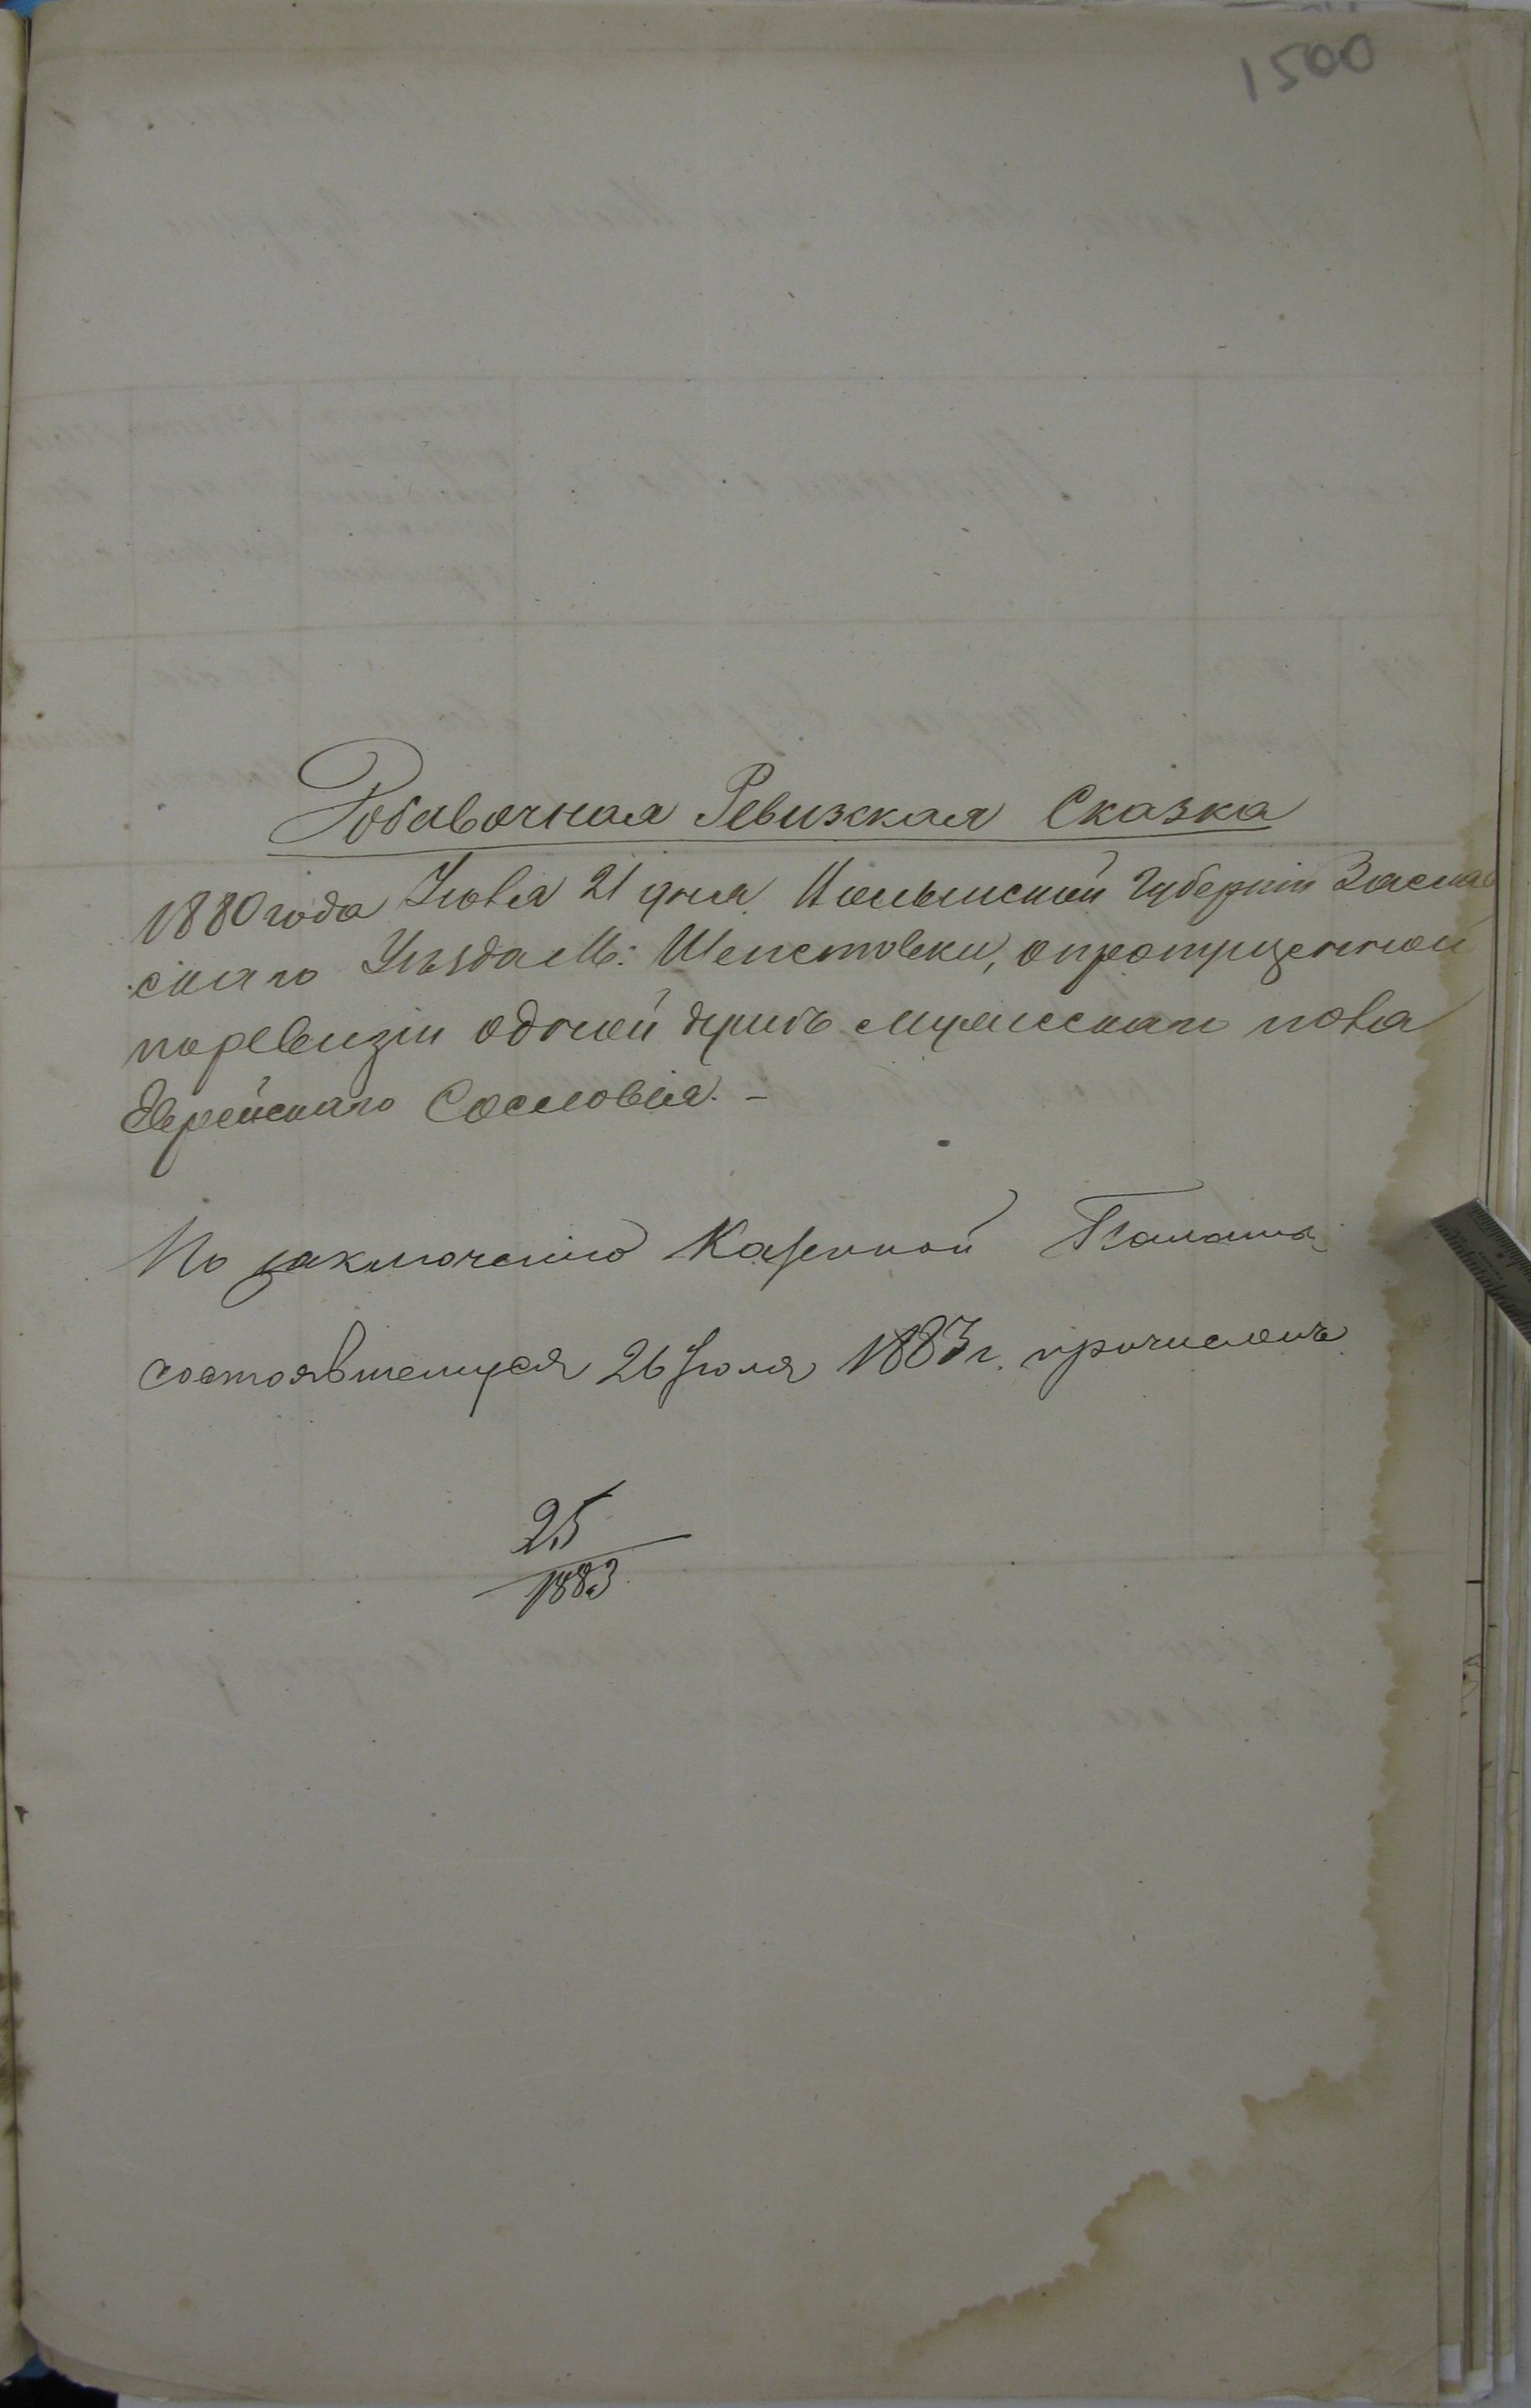 1500
Добавочная Ревизская Сказка
1880 года Іюля 21 дня Волынской Губерніи Заслав
скаго Уѣзда М: Шепетовки, опропущенной
поревизіи одной душѣ мужескаго пола
Еврейскаго Сословія. –
По заключенію Казенной Палаты,
состоявшемуся 26 Іюля 1883 г. причисленъ
25
1883